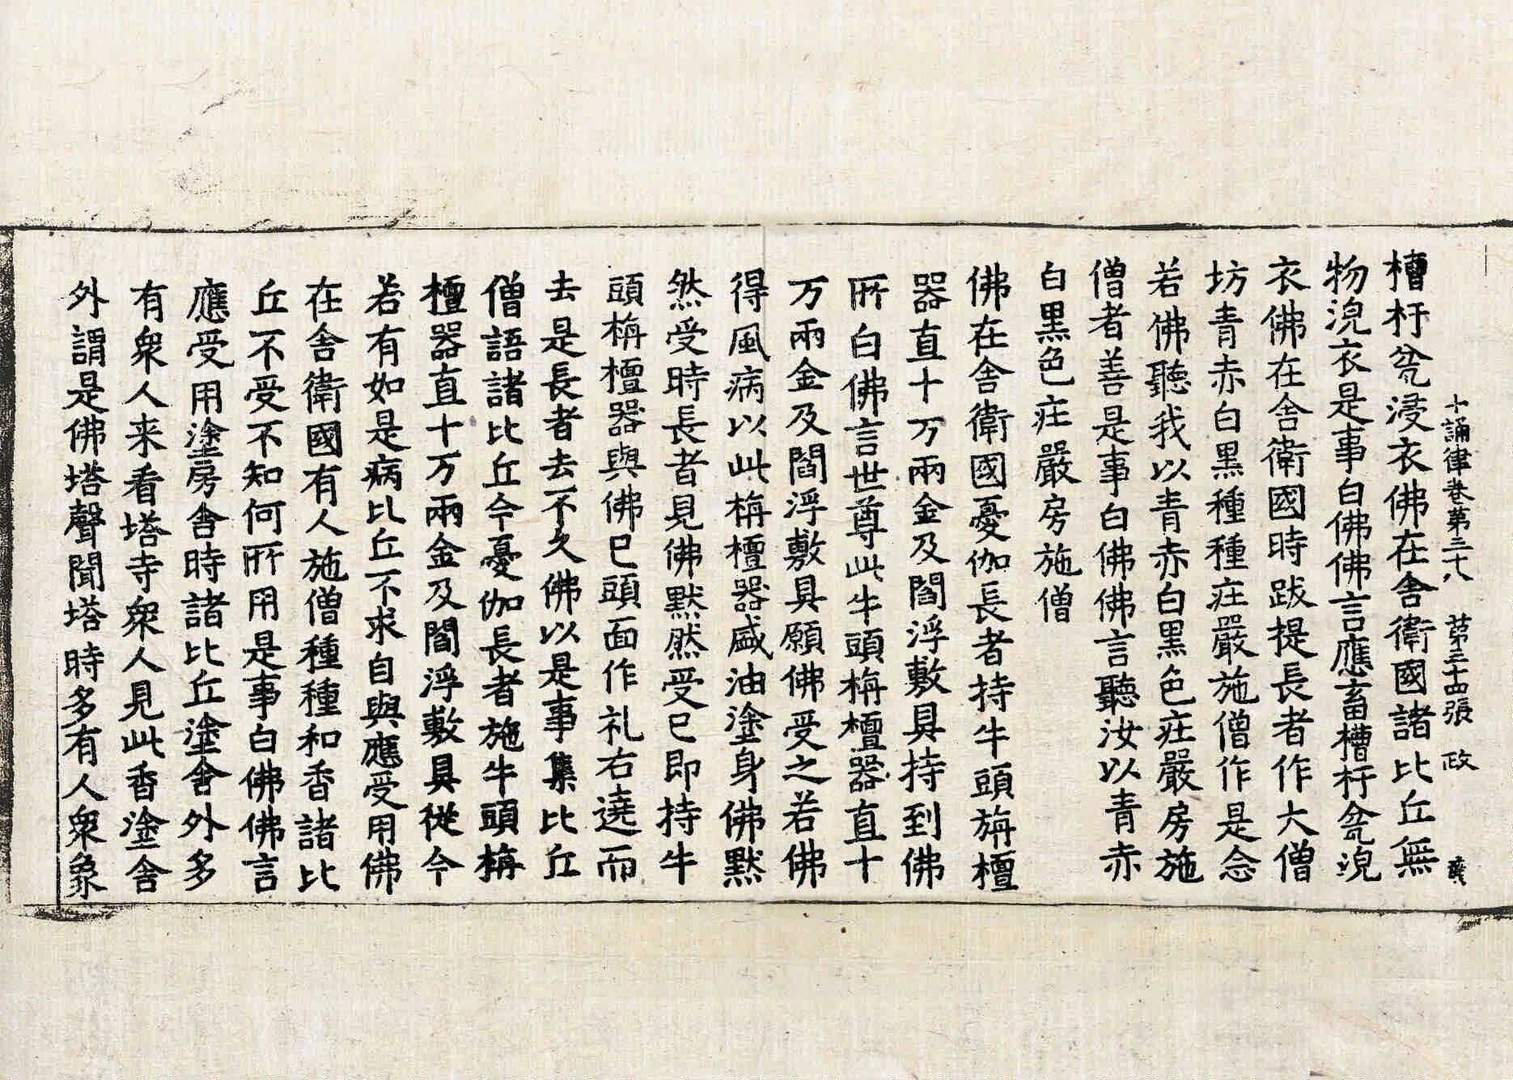 十誦律卷第三十八　第三十四張　政
槽杅瓮浸衣佛在舍衛國諸比丘無
物涗衣是事白佛佛言應畜槽杅瓮涗
衣佛在舍衛國時跋提長者作大僧
坊青赤白黑種種庄嚴施僧作是念
若佛聽我以青赤白黑色庄嚴房施
僧者善是事白佛佛言聽汝以青赤
白黑色庄嚴房施僧
佛在舍衛國憂伽長者持牛頭栴檀
器直十万兩金及閻浮敷具持到佛
所白佛言世尊此牛頭栴檀器直十
万兩金及閻浮敷具願佛受之若佛
得風病以此栴檀器盛油塗身佛默
然受時長者見佛默然受已即持牛
頭栴檀器與佛已頭面作礼右遶而
去是長者去不久佛以是事集比丘
僧語諸比丘今憂伽長者施牛頭栴
檀器直十万兩金及閻浮敷具從今
若有如是病比丘不求自與應受用佛
在舍衛國有人施僧種種和香諸比
丘不受不知何所用是事白佛佛言
應受用塗房舍時諸比丘塗舍外多
有衆人来看塔寺衆人見此香塗舍
外謂是佛塔聲聞塔時多有人衆象